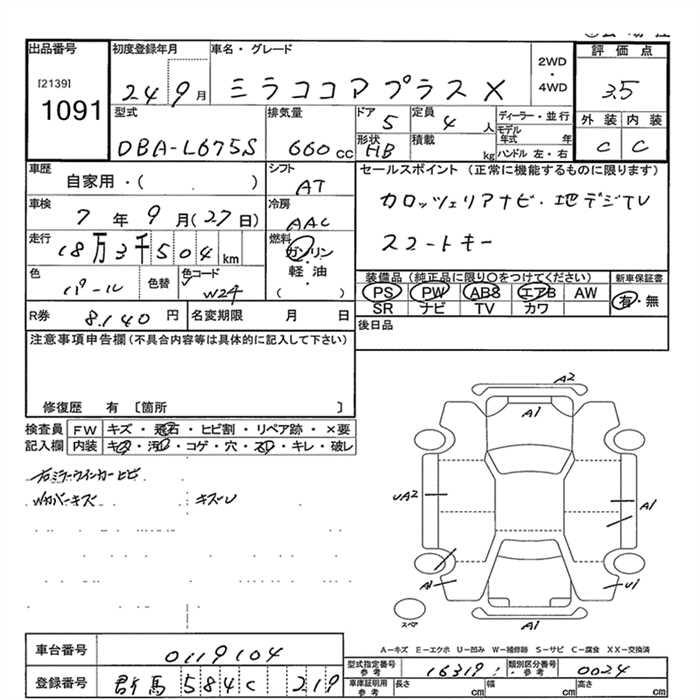 出品番号
[2139]
1091
初度登録年月
24 9月
車名・グレード
ミラココアプラスX
2WD
・
4WD
評価点
3.5
外装 内装
C C
型式
DBA-L675S
排気量
660cc
ドア 5
形状 HB
定員 4人
積載 kg
ディーラー・並行
モデル年式 年
ハンドル 左・右
車歴
自家用・( )
シフト
AT
車検
7年9月(27日)
冷房
AAC
走行
18万3千504km
燃料
ガソリン
軽・油
( )
色
パール
色替
色コード
W24
セールスポイント (正常に機能するものに限ります)
カロッツェリアナビ・地デジTV
スマートキー
装備品(純正品に限り○をつけてください)
PS PW ABS エアB AW
SR ナビ TV カワ
新車保証書
有・無
後日品
R券 8,140円
名変期限 月 日
注意事項申告欄(不具合内容等は具体的に記入して下さい)
修復歴 有 〔箇所 〕
検査員記入欄
FW キズ・飛石・ヒビ割・リペア跡・×要
内装 キズ・汚れ・コゲ・穴・スレ・キレ・破レ
右ミラーウインカーヒビ
Wカバーキズ キズU
A2
A1
UA2
A1
A1
U1
A1
スペ
A−キズ E−エクボ U−凹み W−補修跡 S−サビ C−腐食 XX−交換済
車台番号
0119104
登録番号
群馬 584 C 219
型式指定番号
参考
16319
類別区分番号
参考
0024
車庫証明用
参考
長さ cm 幅 cm 高さ cm